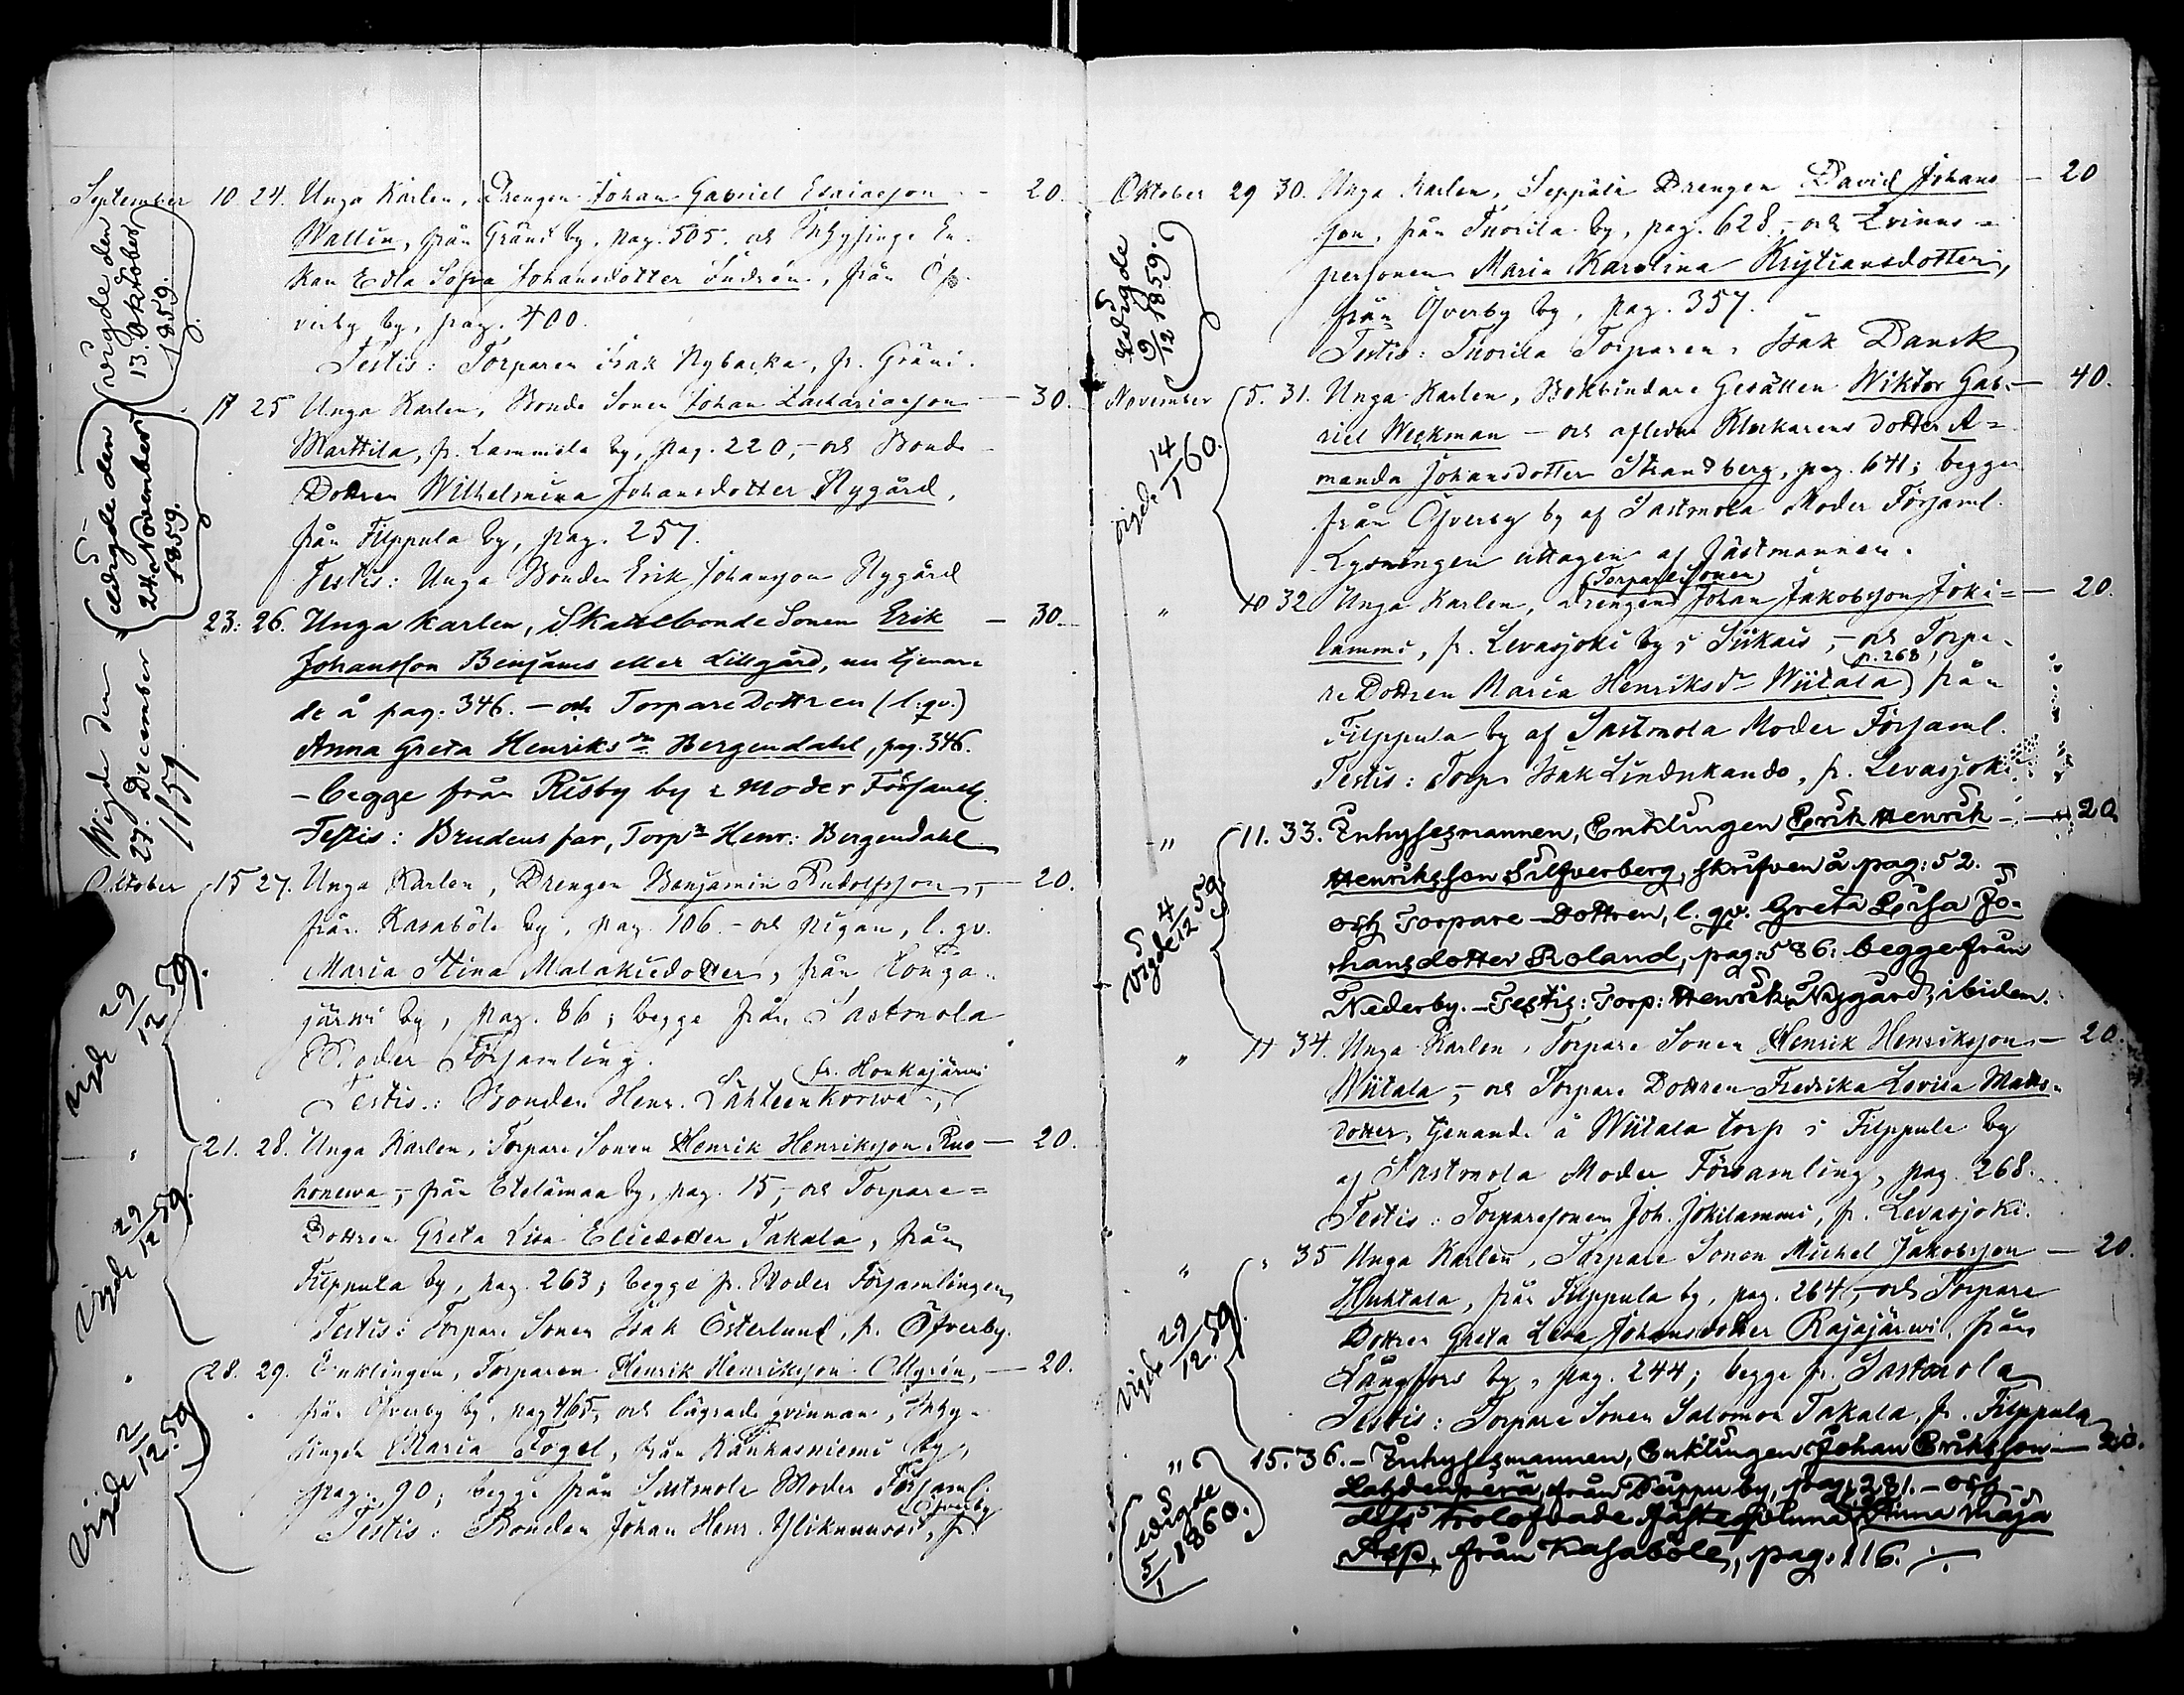 September 10. 24. Unga Karlen, Drengen Johan Gabriel Esaiasson — 20.
Wallin, från Gräni by, pag. 505. och Inhysinge En-
kan Edla Sofia Johansdotter Indrén, från Öf-
verby by, pag. 400.
Testis: Torparen Isak Nybacka, fr. Gräni.
vigde den 13. Oktober 1859.
17 25 Unga Karlen, Bonde Sonen Johan Zachariasson — 30.
Marttila, fr. Lammela by, pag. 220, – och Bonde
Dottren Wilhelmina Johansdotter Nygård,
från Filppula by, pag. 257.
Testis: Unga Bonden Erik Johansson Nygård
vigde den 24de November 1859.
23. 26. Unga karlen, Skattebonde Sonen Erik — 30.
Johansson Benjams eller Lillgård, nu tjenan-
de å pag. 346. – och TorpareDottren (l. qv.)
Anna Greta Henriksdr Bergendahl, pag. 346.
– begge från Risby by i Moder Församl.
Testis: Brudens far, Torpn Henr: Bergendahl
Wigde den 27. December 1859
Oktober 15 27. Unga Karlen, Drengen Benjamin Rudolfsson, — 20.
från Kasaböle by, pag. 106. – och pigan, l. qv.
Maria Stina Malakiedotter, från Honga-
järwi by, pag. 86; begge från Sastmola
Moder Församling.
fr. Honkajärwi
Testis: Bonden Henr. Lähteenkorwa,
Vigde 29/12 59.
" 21. 28. Unga Karlen, Torpare Sonen Henrik Henriksson Ruo — 20.
honewa, – från Etelämaa by, pag. 15, – och Torpare=
Dottren Greta Lisa Eliedotter Takala, från
Filppula by, pag. 263; begge fr. Moder Församlingen
Testis: Torpare Sonen Isak Österlund, fr. Öfverby.
Vigde 29/12 59.
" 28. 29. Enklingen, Torparen Henrik Henriksson Ollgrén, — 20.
från Öfverby by, pag 465, och lägrade qvinnan, Inhy-
singen Maria Fogel, från Kankasniemi by,
pag. 90; begge från Sastmola Moder Församl.
Öfverby
Testis: Bonden Johan Henr. Yliknuussi, fr.
Vigde 2/12 59
Oktober 29 30. Unga Karlen, Seppälä Drengen David Johans — 20
son, från Tuorila by, pag. 628, – och Qvinns-
personen Maria Karolina Kristiansdotter,
från Öfverby by, pag. 357.
Testis: Tuorila Torparen, Isak Dansk
Vigde 9/12 1859.
November 5. 31. Unga Karlen, Bokbindare Gesällen Wiktor Gab- — 40.
riel Weckman – och aflidne Klockarens dotter A=
manda Johansdotter Strandberg, pag. 641; begge
från Öfverby by af Sastmola Moder Församl.
Lysningen uttagen af fästmannen.
vigde 14/1 60.
Torparesonen
" 10 32 Unga Karlen, drengen Johan Jakobsson Joki= — 20.
lammi, fr. Levasjoki by i Siikais, – och Torpa-
p. 268
re Dottren Maria Henriksdr Wiitala från
Filppula by af Sastmola Moder Församl.
Testis: Torpn Isak Lindukando, fr. Levasjoki
" 11. 33. Inhysesmannen, Enklingen Erik Henrik — 20.
Henriksson Silfverberg, skrifven å pag: 52. –
och Torpare-Dottren, l. qv. Greta Lisa Jo-
hansdotter Roland, pag: 586: begge från
Nederby. – Testis: Torp: Henrik Nygård, ibidem.
Vigde 4/12 59
" 11 34. Unga Karlen, Torpare Sonen Henrik Henriksson — 20.
Wiitala, – och Torpare Dottren Fredrika Lovisa Matts-
dotter, tjenande å Wiitala torp i Filppula by
af Sastmola Moder Församling, pag. 268.
Testis: Torparesonen Joh. Jokilammi, fr. Levasjoki.
" " 35 Unga Karlen, Torpare Sonen Michel Jakobsson — 20.
Huhtala, från Filppula by, pag. 264, – och Torpare
Dottren Greta Lena Johansdotter Rajajärwi, från
Långfors by, pag. 244; begge fr. Sastmola
Testis: Torpare Sonen Salomon Takala, fr. Filppula
Vigde 29/12 59.
" 15. 36. – Inhysesmannen, Enklingen Johan Eriksson — 20.
Lahdenperä från Peippu by, pag: 281. – och –
dess trolofvade fästeqvinna Anna Maja
Asp, från Kasaböle, pag: 116.
vigde 5/1 1860.